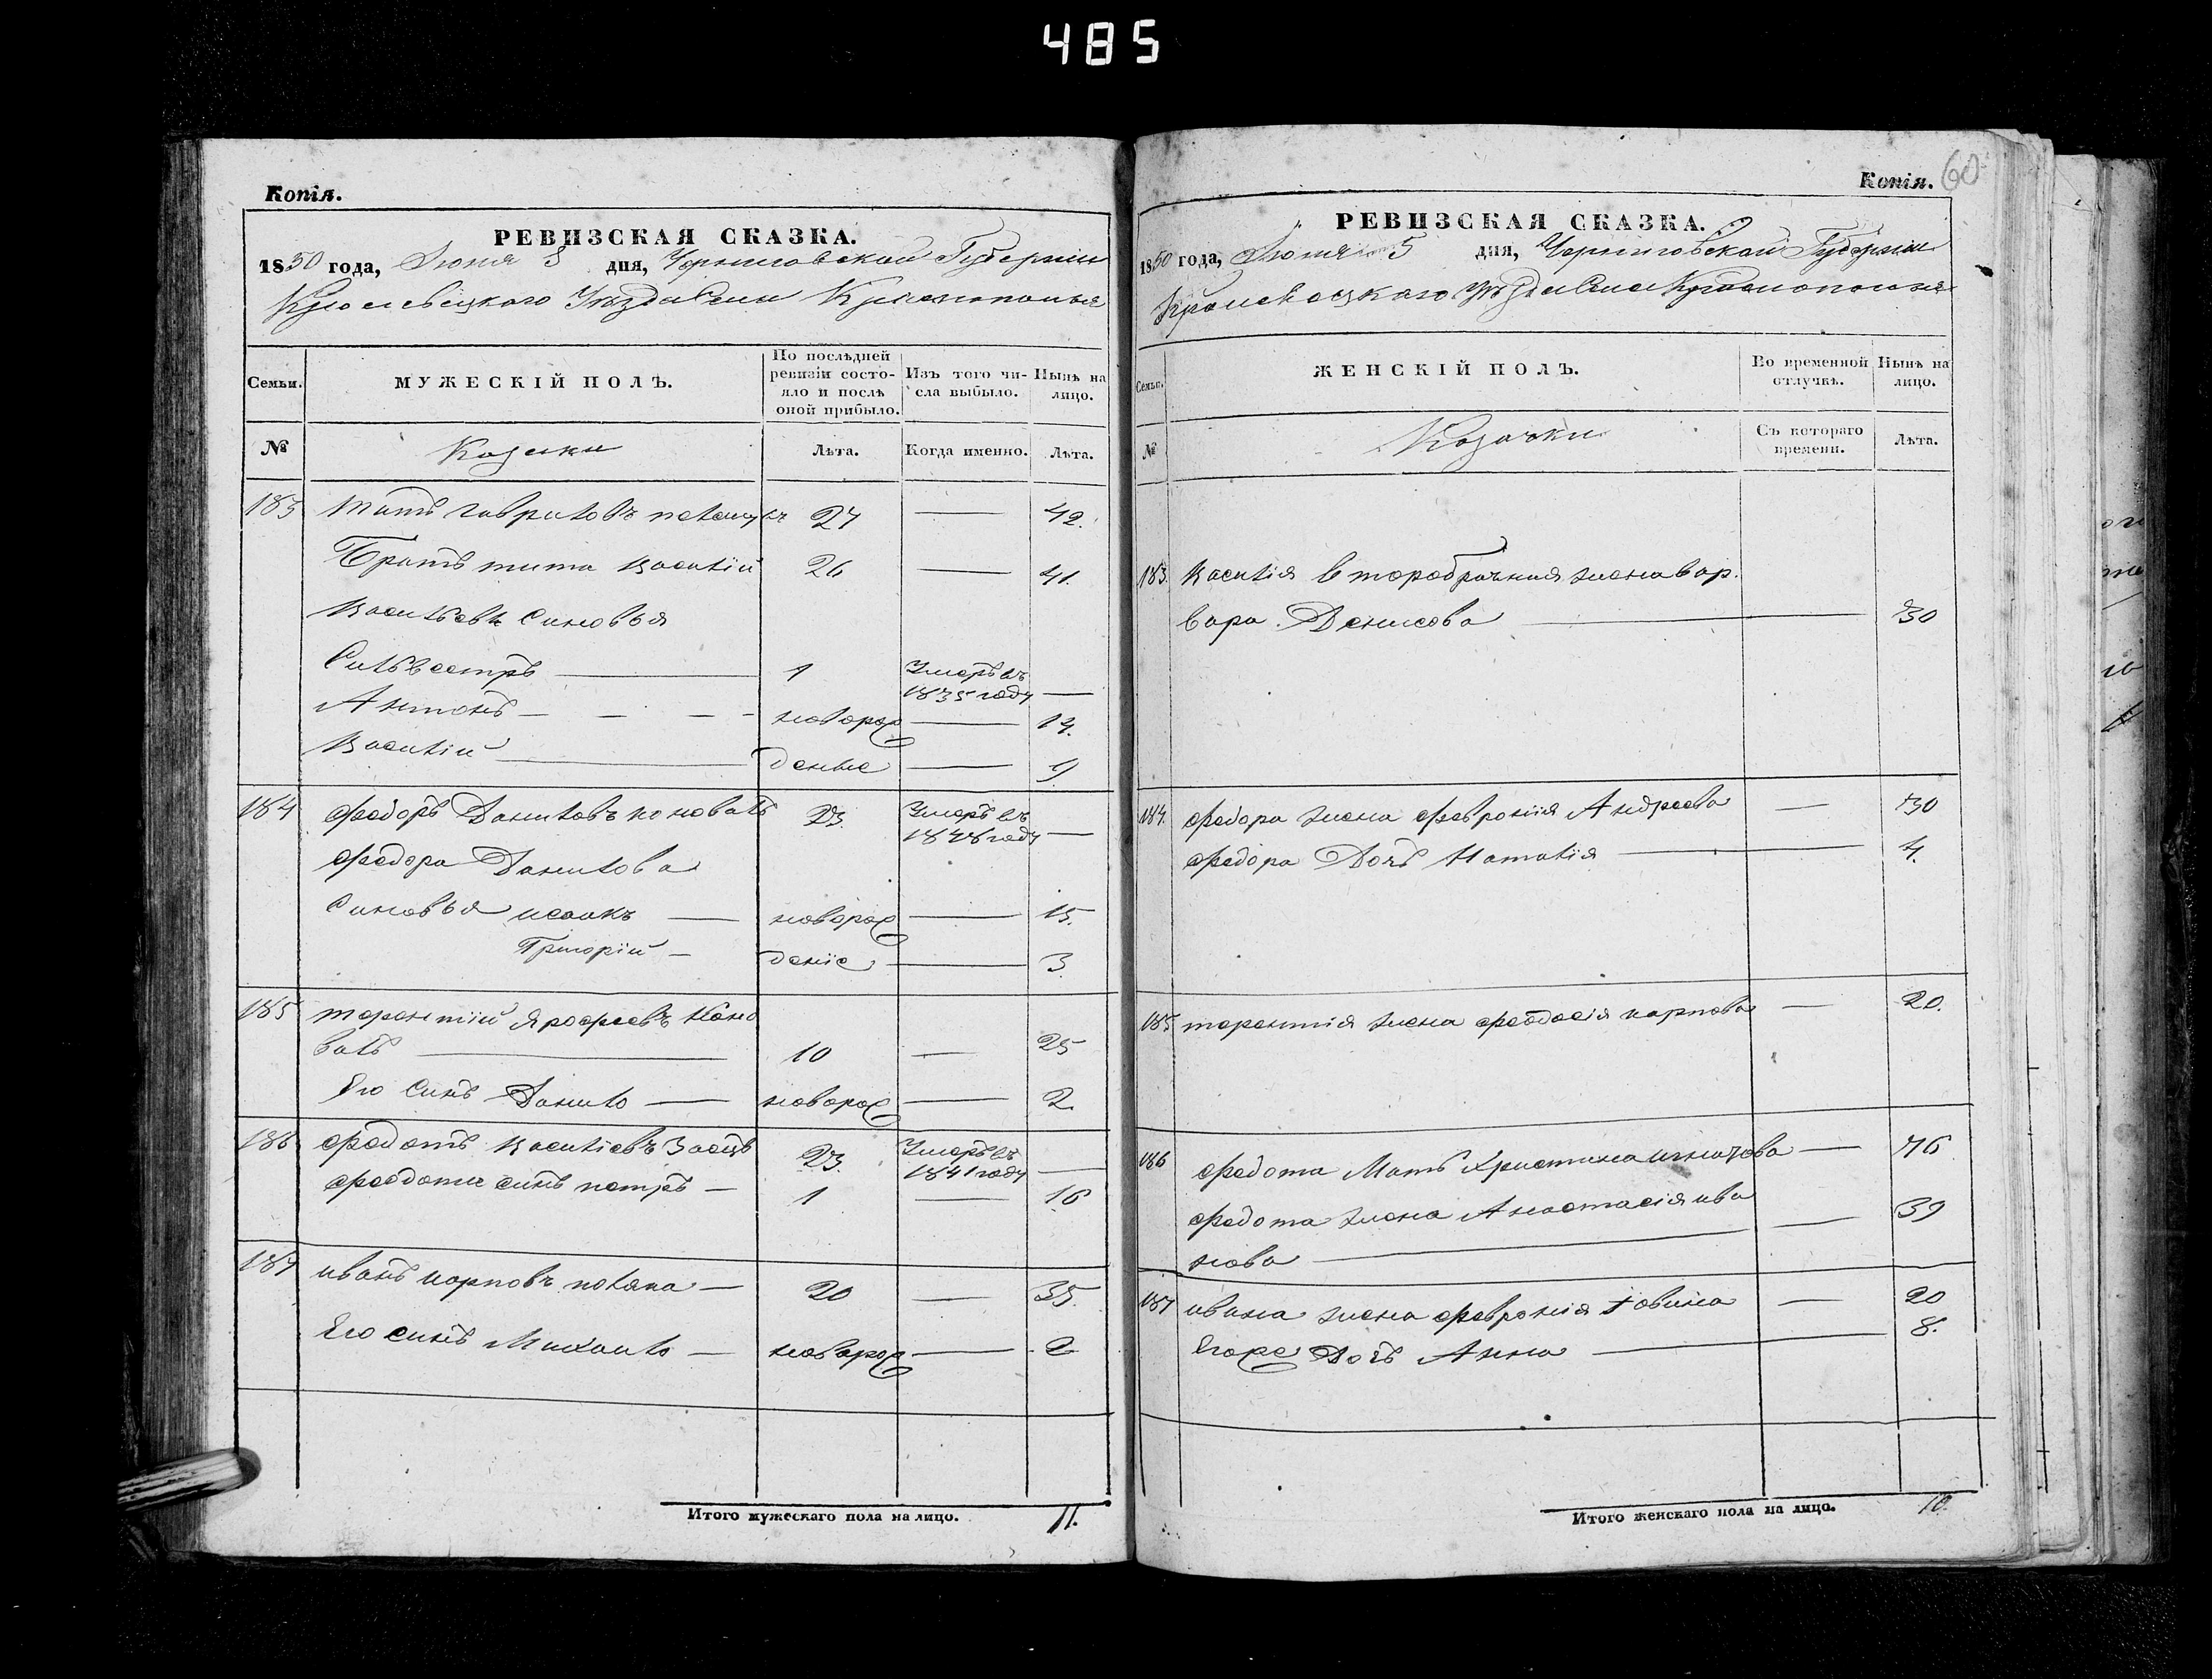 485
Копія.
РЕВИЗСКАЯ СКАЗКА.
1850 года, Июня 5 дня, Черниговской Губерніи
Кролевецкаго Уѣзда Села Краснополья
Семьи.
МУЖЕСКІЙ ПОЛЪ.
По послѣдней ревизіи состояло и послѣ оной прибыло.
Изъ того числа выбыло.
Нынѣ на лицо.
№
Козаки
Лѣта.
Когда именно.
Лѣта.
183 титъ гавриловъ 27 — 42.
Братъ тита василій 26 — 41.
васильевы синовья
Сильвестръ — 1 Умеръ въ 1835 году —
Антонъ — новорож — 14.
василій — деные — 9
184 федоръ Даниловъ коновалъ 23 Умеръ въ 1848 году —
федора Данилова
Синовья исакъ — новорож — 15.
Григорій — деніе — 3
185 терентій ерофеевъ коно
валъ — 10 — 25
Его Синъ Данило — новорож — 2.
186 федотъ василіевъ Заецъ 23 Умеръ въ 1841 году —
феодота синъ петръ — 1 — 16
187 иванъ карповъ — 20 — 35.
Его синъ Михаило — новорож — 2
Итого мужескаго пола на лицо. 11.
Копія. 60
РЕВИЗСКАЯ СКАЗКА.
1850 года, Июня 5 дня, Черниговской Губерніи
Кролевецкаго Уѣзда Села Краснополья
Семьи.
ЖЕНСКІЙ ПОЛЪ.
Во временной отлучкѣ.
Нынѣ на лицо.
№
Козачки
Съ котораго времени.
Лѣта.
183. василія второбрачная жена вар.
вара Денисова — 30
184. федора жена феврониія Андреева — 30
федора Дочь Наталія — 4.
185 терентія жена феодосія карпова — 20.
186 федота Мать Христина игнатова — 76
федота жена Анастасія ива
нова — 39
187 ивана жена февронія — 20
Егоже Дочь Анна — 8.
Итого женскаго пола на лицо. 10.